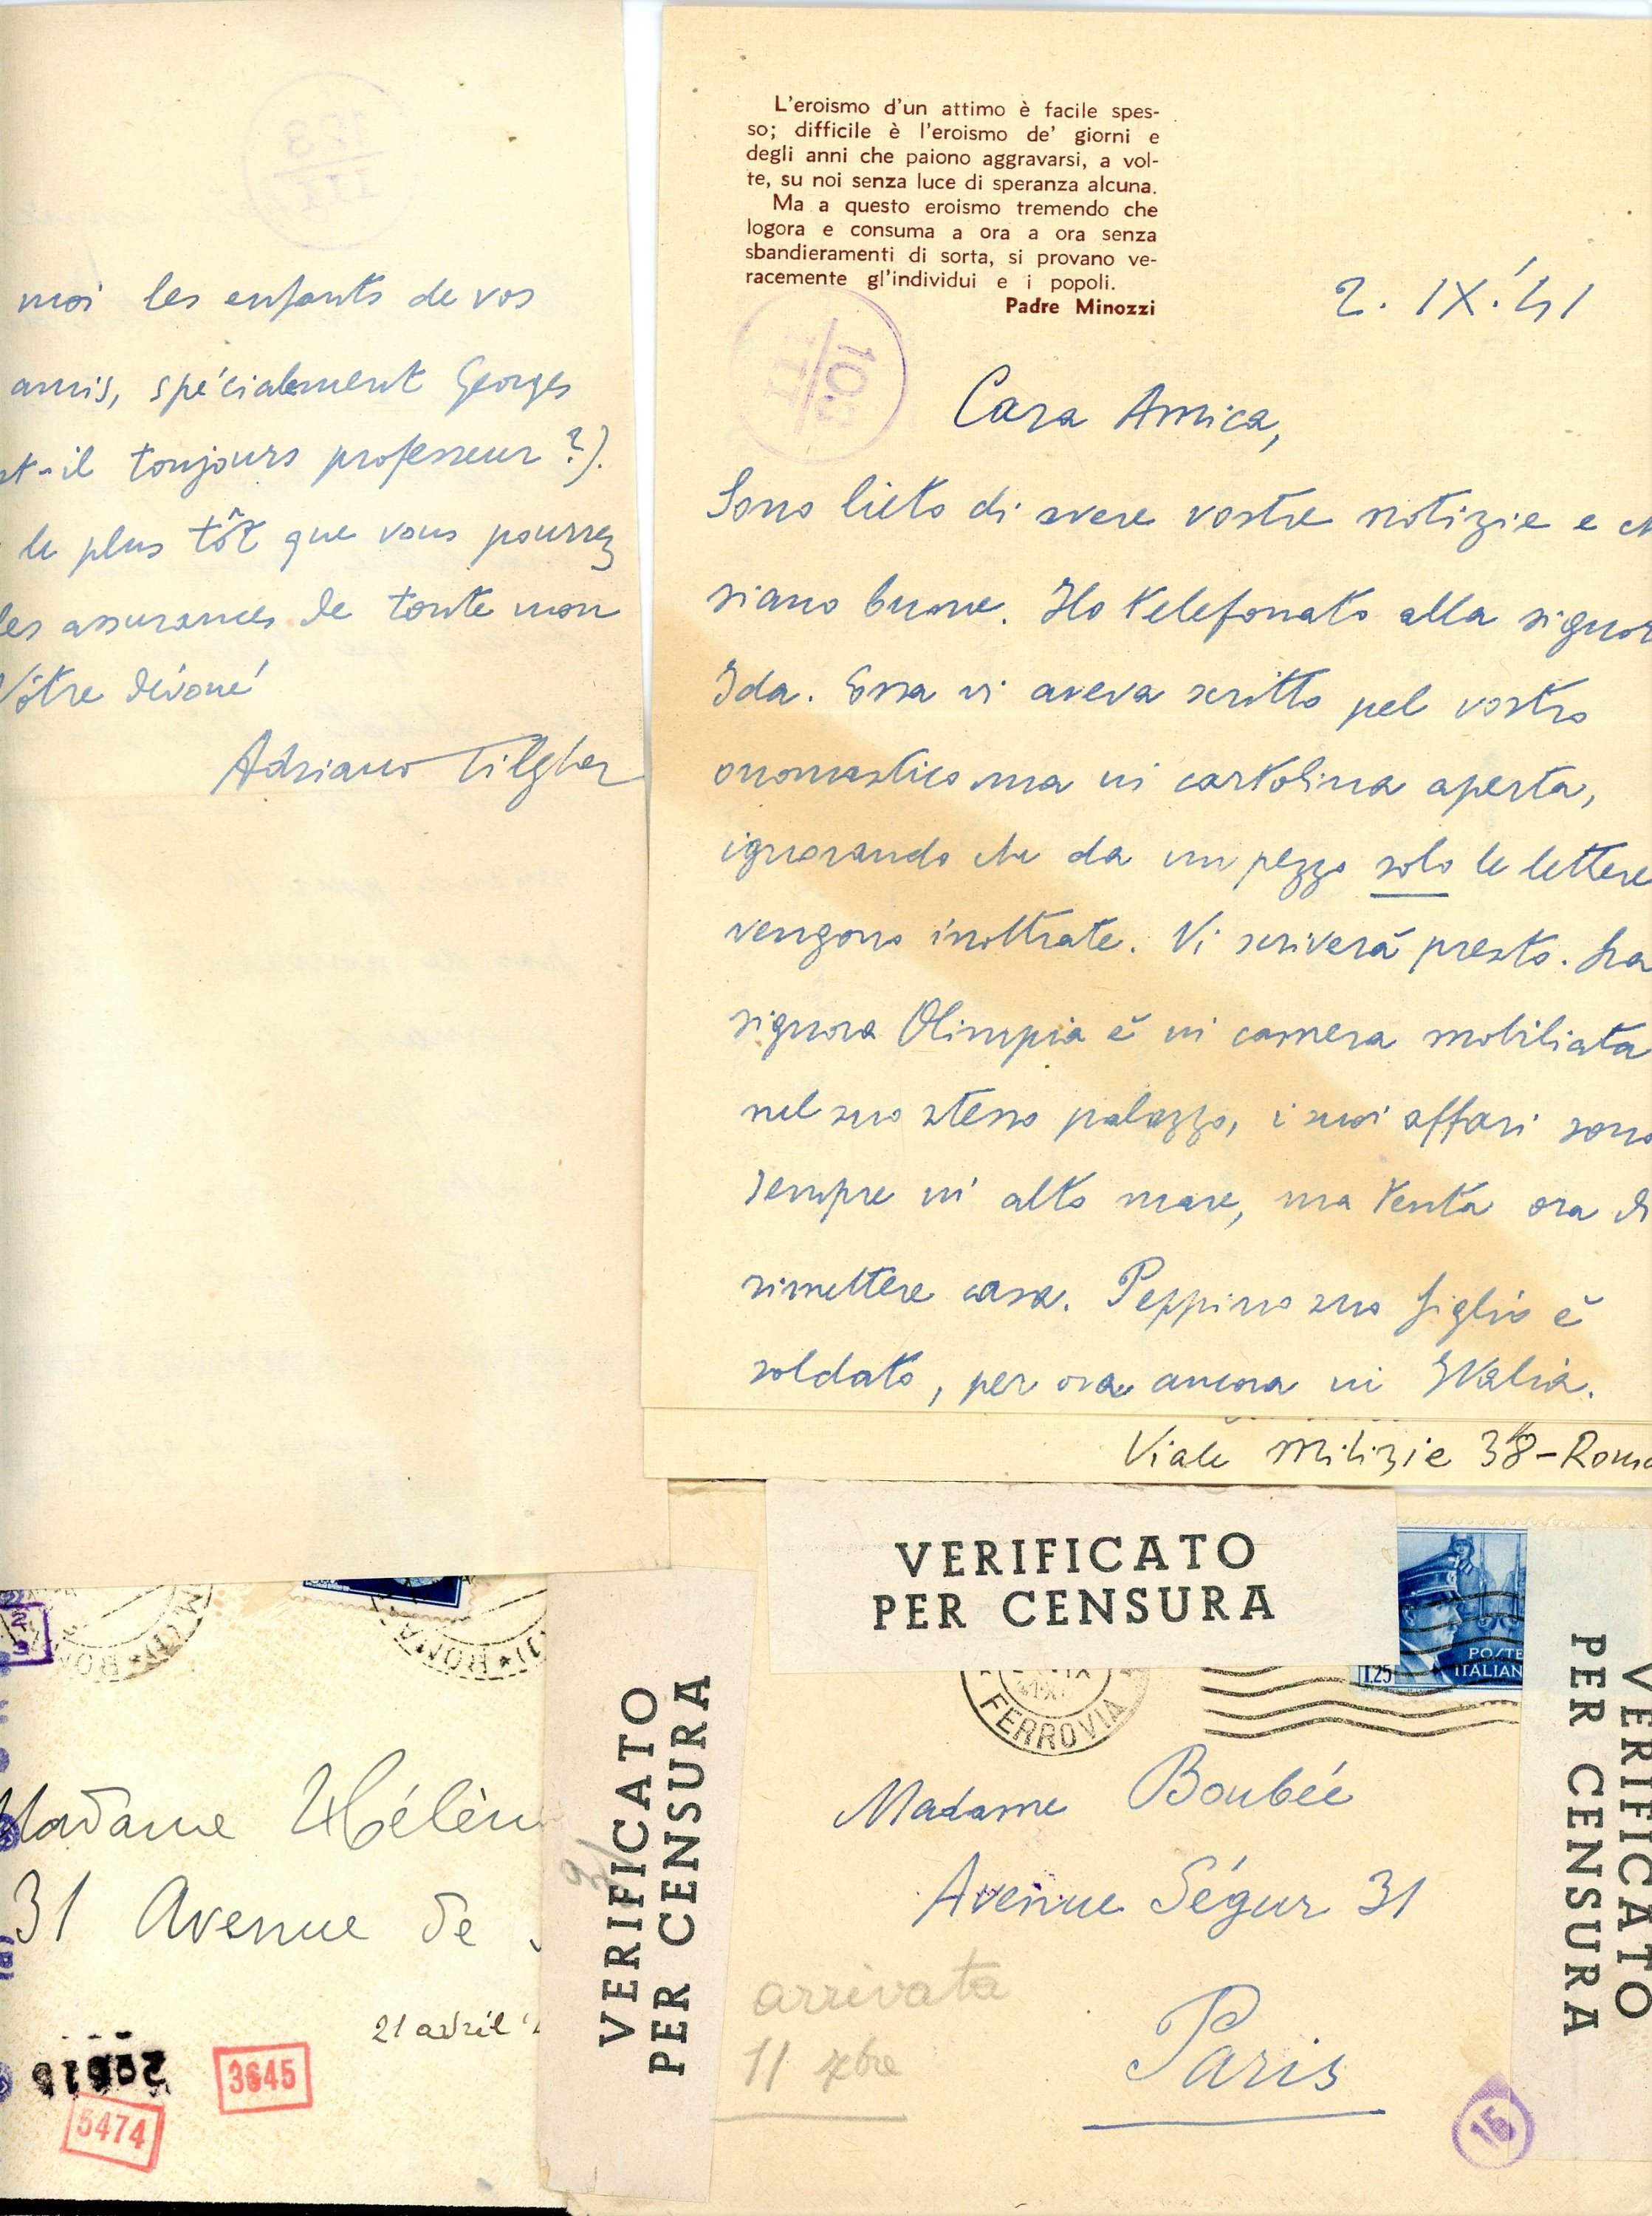 moi les enfants de vos
amis, spécialement Georges
st-il toujours professeur ?).
le plus tôt que vous pourrez
les assurances de toute mon
Vôtre dévoué
Adriano Tilgher
L'eroismo d'un attimo è facile spes-
so; difficile è l'eroismo de' giorni e
degli anni che paiono aggravarsi, a vol-
te, su noi senza luce di speranza alcuna.
Ma a questo eroismo tremendo che
logora e consuma a ora a ora senza
sbandieramenti di sorta, si provano ve-
racemente gl'individui e i popoli.
Padre Minozzi
103
III
2. IX. '41
Cara Amica,
Sono lieto di avere vostre notizie e ch
siano buone. Ho telefonato alla signor
Ida. Essa vi aveva scritto pel vostro
onomastico ma in cartolina aperta,
ignorando che da un pezzo solo le lettere
vengono inoltrate. Vi scriverà presto. La
signora Olimpia è in camera mobiliata
nel suo stesso palazzo, i suoi affari sono
sempre in alto mare, ma tenta ora di
rimettere casa. Peppino suo figlio è
soldato, per ora ancora in Italia.
Viale Milizie 38 - Roma
VERIFICATO
PER CENSURA
POSTE
ITALIAN
1.25
FERROVIA
VERIFICATO
PER CENSURA
VERIFICATO
PER CENSURA
Madame Boubée
Avenue Ségur 31
Paris
arrivata
11 7bre
15
ROMA
Madame Hélèn
31 Avenue de S
21 avril '4
20515
3645
5474